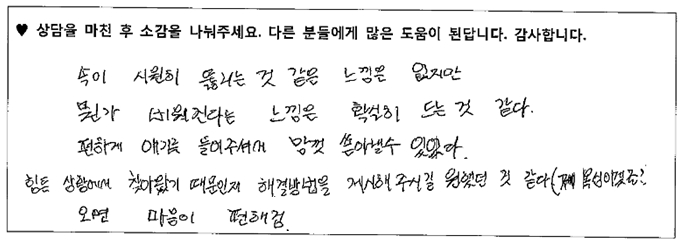 ♥ 상담을 마친 후 소감을 나눠주세요. 다른 분들에게 많은 도움이 된답니다. 감사합니다.
속이 시원히 뚫리는 것 같은 느낌은 없지만
뭔가 비워진다는 느낌은 확실히 드는 것 같다.
편하게 얘기를 들어주셔서 맘껏 쏟아낼수 있었다.
힘든 상황에서 찾아왔기 때문인지 해결방법을 제시해 주시길 원했던 것 같다(제 욕심이겠죠?
오면 마음이 편해짐